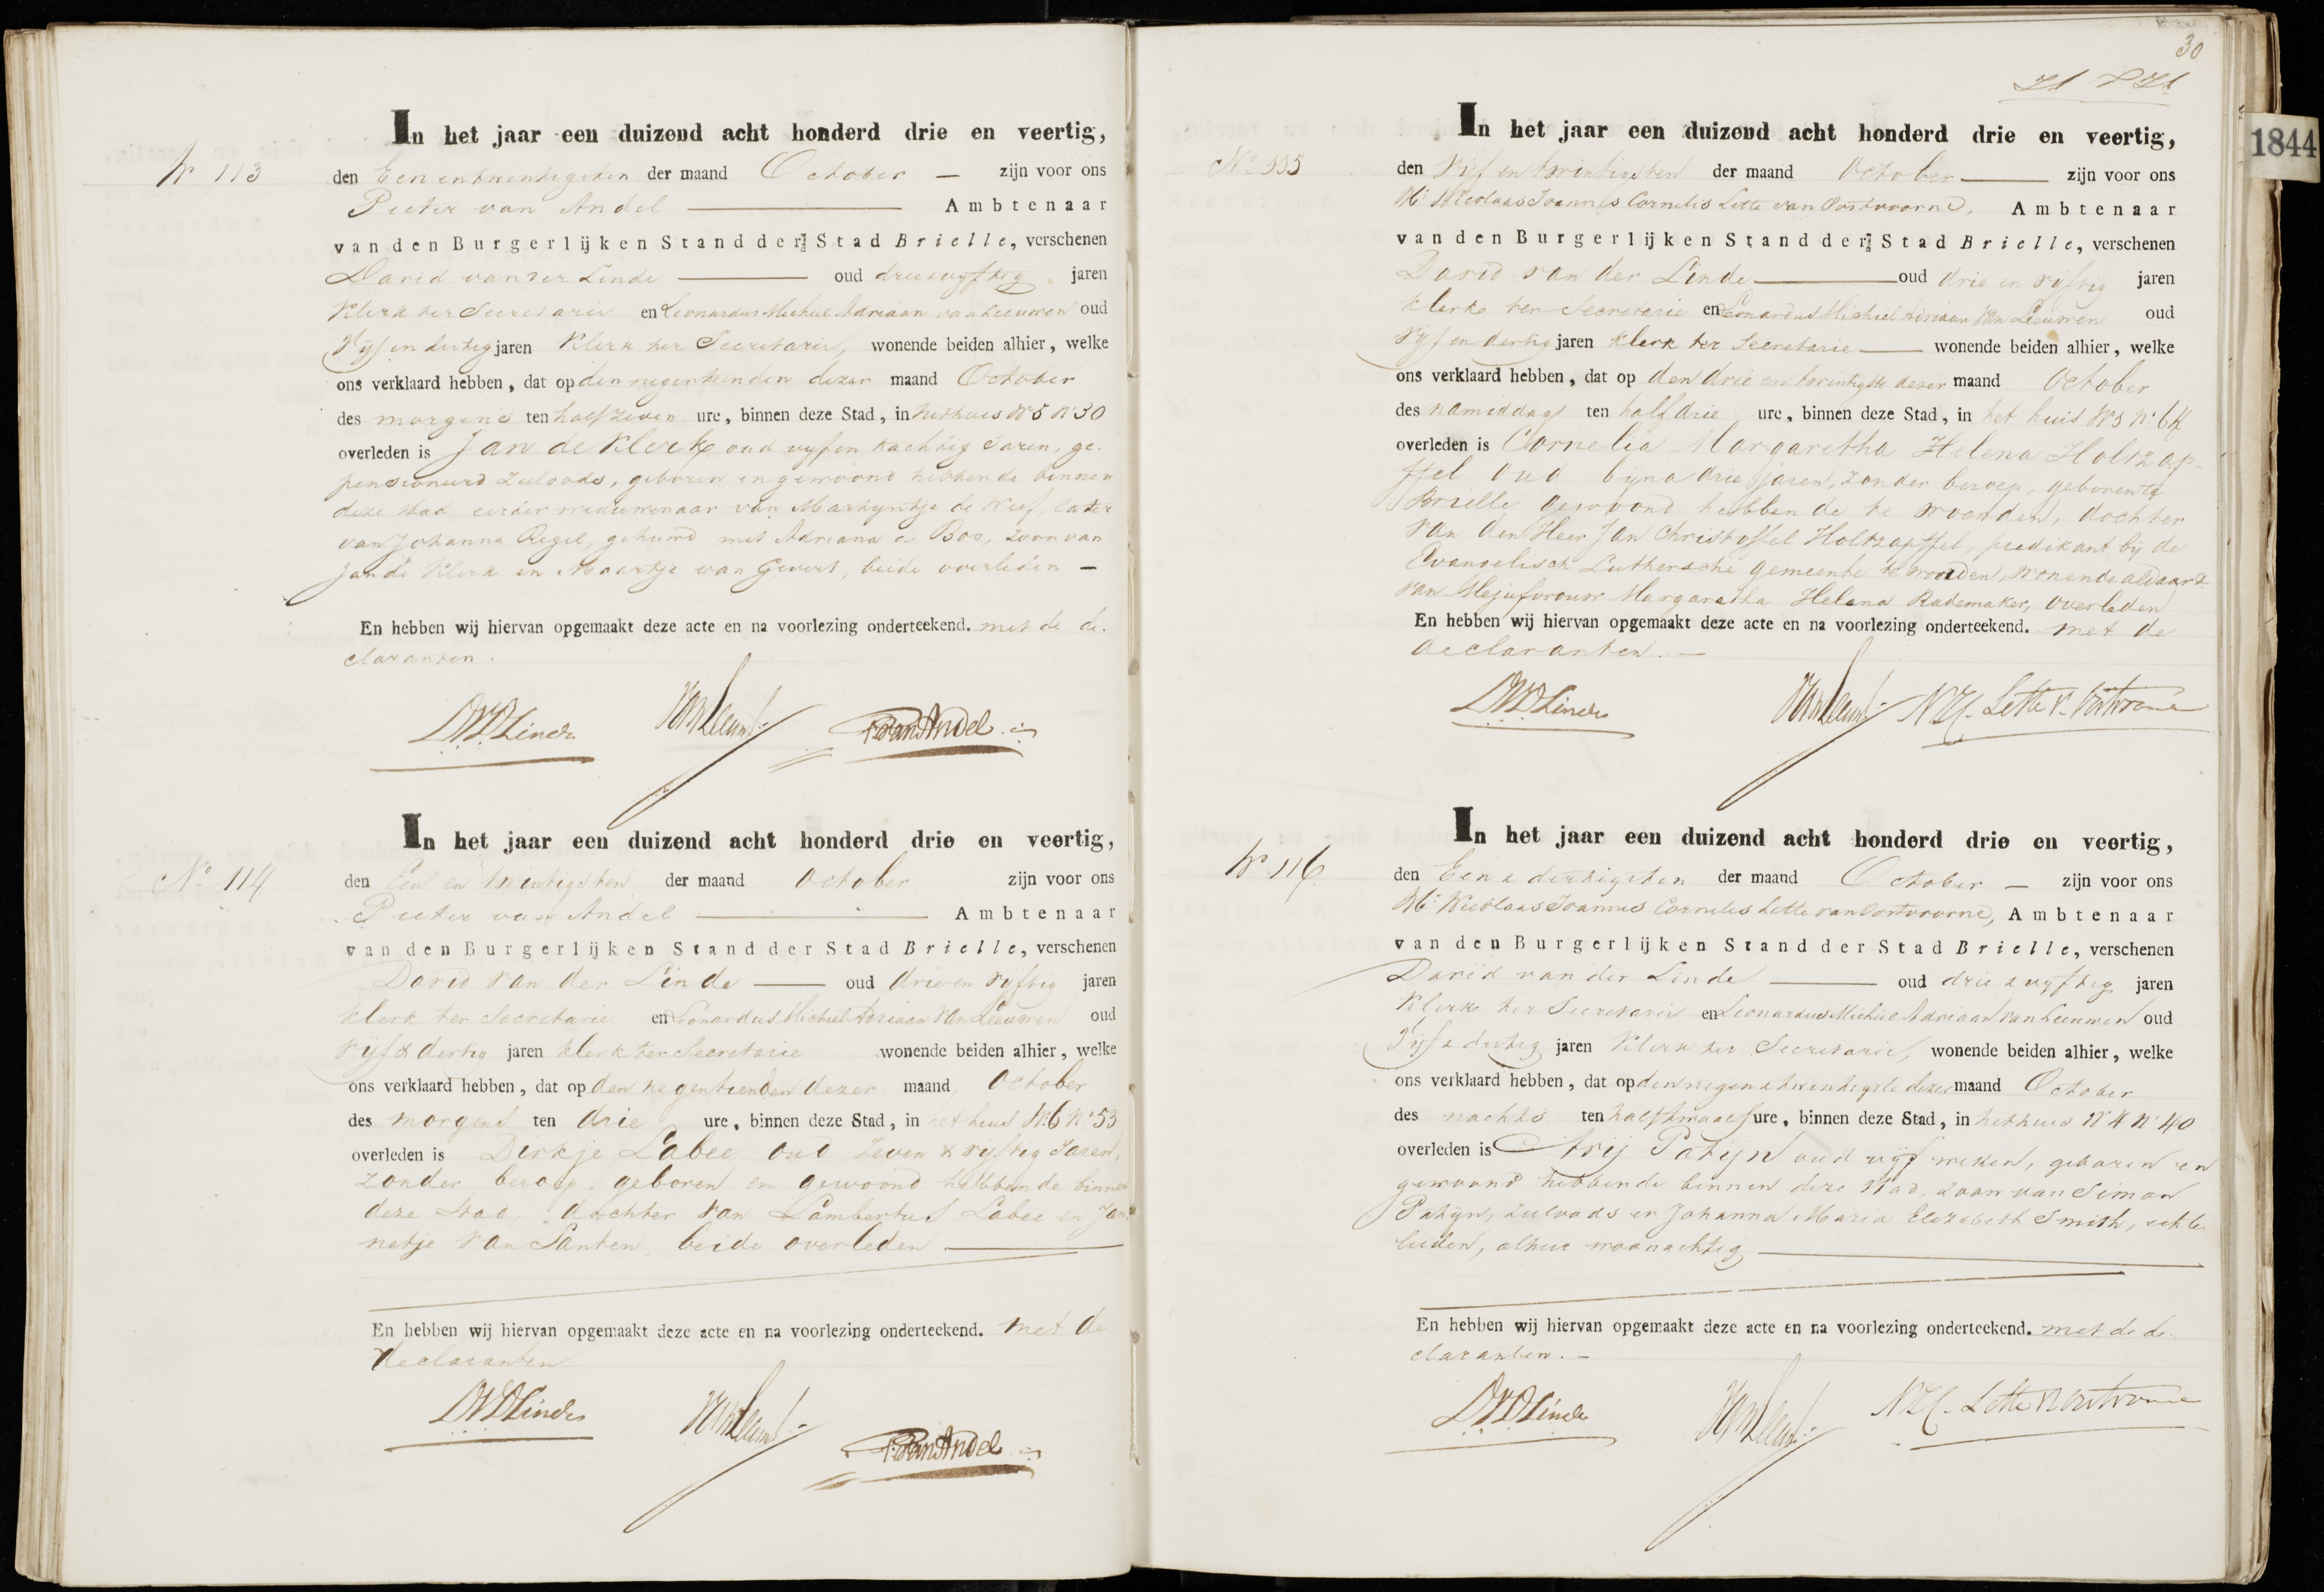 In het jaar een duizend acht honderd drie en veertig,
Nº 113
den Een en twentigsten der maand October — zijn voor ons
Pieter van Andel — Ambtenaar
van den Burgerlijken Stand der Stad Brielle, verschenen
David van der Linde — oud drie & vyftig jaren
Klerk ter Secretarie en Leonardus Michiel Adriaan van Leeuwen oud
Vijf en dertig jaren Klerk ter Secretarie, wonende beiden alhier, welke
ons verklaard hebben, dat op den negentienden dezer maand October
des morgens ten half zeven ure, binnen deze Stad, in het huis W 5 Nº 30
overleden is Jan de Klerk, oud vyf en tachtig Jaren, ge-
pensioneerd Zuloods, geboren en gewoond hebbende binnen
deze stad, eerder weduwenaar van Martyntje de Neef, later
van Johanna Regel, gehuwd met Adriana de Boo, zoon van
Jan de Klerk en Maartje van Gevert, beide overleden —
En hebben wij hiervan opgemaakt deze acte en na voorlezing onderteekend. met de de-
claranten.
DVDLinde VanLeeuw P. van Andel
In het jaar een duizend acht honderd drie en veertig,
Nº 114
den Een en twintigsten der maand October zijn voor ons
Pieter van Andel — Ambtenaar
van den Burgerlijken Stand der Stad Brielle, verschenen
David van der Linde — oud drie en vijftig jaren
klerk ter Secretarie en Leonardus Michiel Adriaan van Leeuwen oud
vijf & dertig jaren klerk ter Secretarie wonende beiden alhier, welke
ons verklaard hebben, dat op den negentienden dezer maand October
des morgens ten drie ure, binnen deze Stad, in het huis W 6 Nº 53
overleden is Dirkje Labee oud zeven & vijftig Jaren,
zonder beroep, geboren en gewoond hebbende binnen
deze Stad, dochter van Lambertus Labee en Jan-
netje van Santen, beide overleden —
En hebben wij hiervan opgemaakt deze acte en na voorlezing onderteekend. met de
declaranten
DVDLinde VanLeeuw P. van Andel
30
1844
In het jaar een duizend acht honderd drie en veertig,
Nº 115
den Vijf en twintigsten der maand October — zijn voor ons
Mr. Nicolaas Joannes Cornelis Lette van Oostvoorne, Ambtenaar
van den Burgerlijken Stand der Stad Brielle, verschenen
David van der Linde — oud drie en vijftig jaren
klerk ter Secretarie en Leonardus Michiel Adriaan van Leeuwen oud
vijf en dertig jaren klerk ter Secretarie — wonende beiden alhier, welke
ons verklaard hebben, dat op den drie en twintigste dezer maand October
des namiddags ten half drie ure, binnen deze Stad, in het huis W 3 Nº 64
overleden is Cornelia Margaretha Helena Holtzap-
ffel oud bijna drie jaren, zonder beroep, geboren te
Brielle gewoond hebbende te Woerden, dochter
van den Heer Jan Christoffel Holtzapffel, predikant bij de
Evangelisch Luthersche gemeente te Woerden, wonende aldaar &
van Mejufvrouw Margaretha Helena Rademaker, overleden
En hebben wij hiervan opgemaakt deze acte en na voorlezing onderteekend. met de
declaranten. —
DVDLinde VanLeeuw NJC. Lette v. Oostvoorne
In het jaar een duizend acht honderd drie en veertig,
Nº 116
den Een & dertigsten der maand October — zijn voor ons
Mr. Nicolaas Joannes Cornelis Lette van Oostvoorne, Ambtenaar
van den Burgerlijken Stand der Stad Brielle, verschenen
David van der Linde — oud drie & vyftig jaren
Klerk ter Secretarie en Leonardus Michiel Adriaan van Leeuwen oud
Vijf & dertig jaren Klerk ter Secretarie, wonende beiden alhier, welke
ons verklaard hebben, dat op den negen & twentigste dezer maand October
des nachts ten half twaalf ure, binnen deze Stad, in het huis W 4 Nº 40
overleden is Arij Patijn oud vijf weken, geboren en
gewoond hebbende binnen deze stad, zoon van Simon
Patijn, zuloods en Johanna Maria Elizabeth Smith, echte-
lieden, alhier woonachtig —
En hebben wij hiervan opgemaakt deze acte en na voorlezing onderteekend. met de de-
claranten. —
DVDLinde VanLeeuw NJC. Lette v Oostvoorne